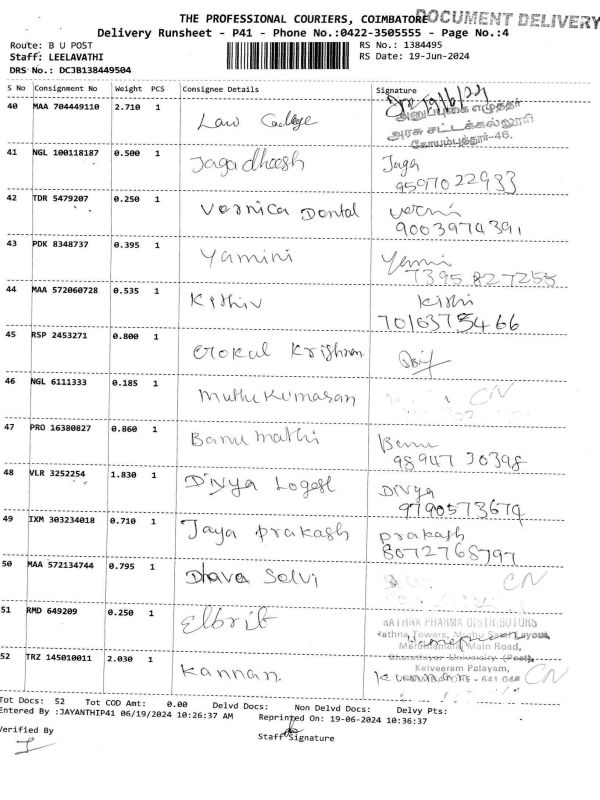 THE PROFESSIONAL COURIERS, COIMBATORE DOCUMENT DELIVERY
Delivery Runsheet - P41 - Phone No.:0422-3505555 - Page No.:4
Route: B U POST RS No.: 1384495
Staff: LEELAVATHI RS Date: 19-Jun-2024
DRS No.: DCJB138449504
S No Consignment No Weight PCS Consignee Details Signature
19/6/24
40 MAA 704449110 2.710 1 Law College
அனுப்புகை எழுத்தர்
அரசு சட்டக்கல்லூரி
கோயம்புத்தூர்-46.
41 NGL 100118187 0.500 1 Jagadheesh Jaga
9597022933
42 TDR 5479207 0.250 1 Vernica Dental Verni
9003974391
43 PDK 8348737 0.395 1 Yamini Yamini
7395 827255
44 MAA 572060728 0.535 1 Kithiv Kithi
7016375466
45 RSP 2453271 0.800 1 Gokul Krishnan
46 NGL 6111333 0.185 1 Muthu Kumaran CN
47 PRO 16380827 0.860 1 Banu mathi Banu
98947 30398
48 VLR 3252254 1.830 1 Divya Logesh Divya
9790573674
49 IXM 303234018 0.710 1 Jaya prakash prakash
8072768797
50 MAA 572134744 0.795 1 Dhava Selvi CN
51 RMD 649209 0.250 1 Elbrit
RATHNA PHARMA DISTRIBUTORS
Rathna Towers,
Maruthamalai Main Road,
Bharathiyar University (Post),
Kalveeram Palayam,
52 TRZ 145010011 2.030 1 Kannan. - 641 046 CN
Tot Docs: 52 Tot COD Amt: 0.00 Delvd Docs: Non Delvd Docs: Delvy Pts:
Entered By :JAYANTHIP41 06/19/2024 10:26:37 AM Reprinted On: 19-06-2024 10:36:37
Verified By Staff Signature